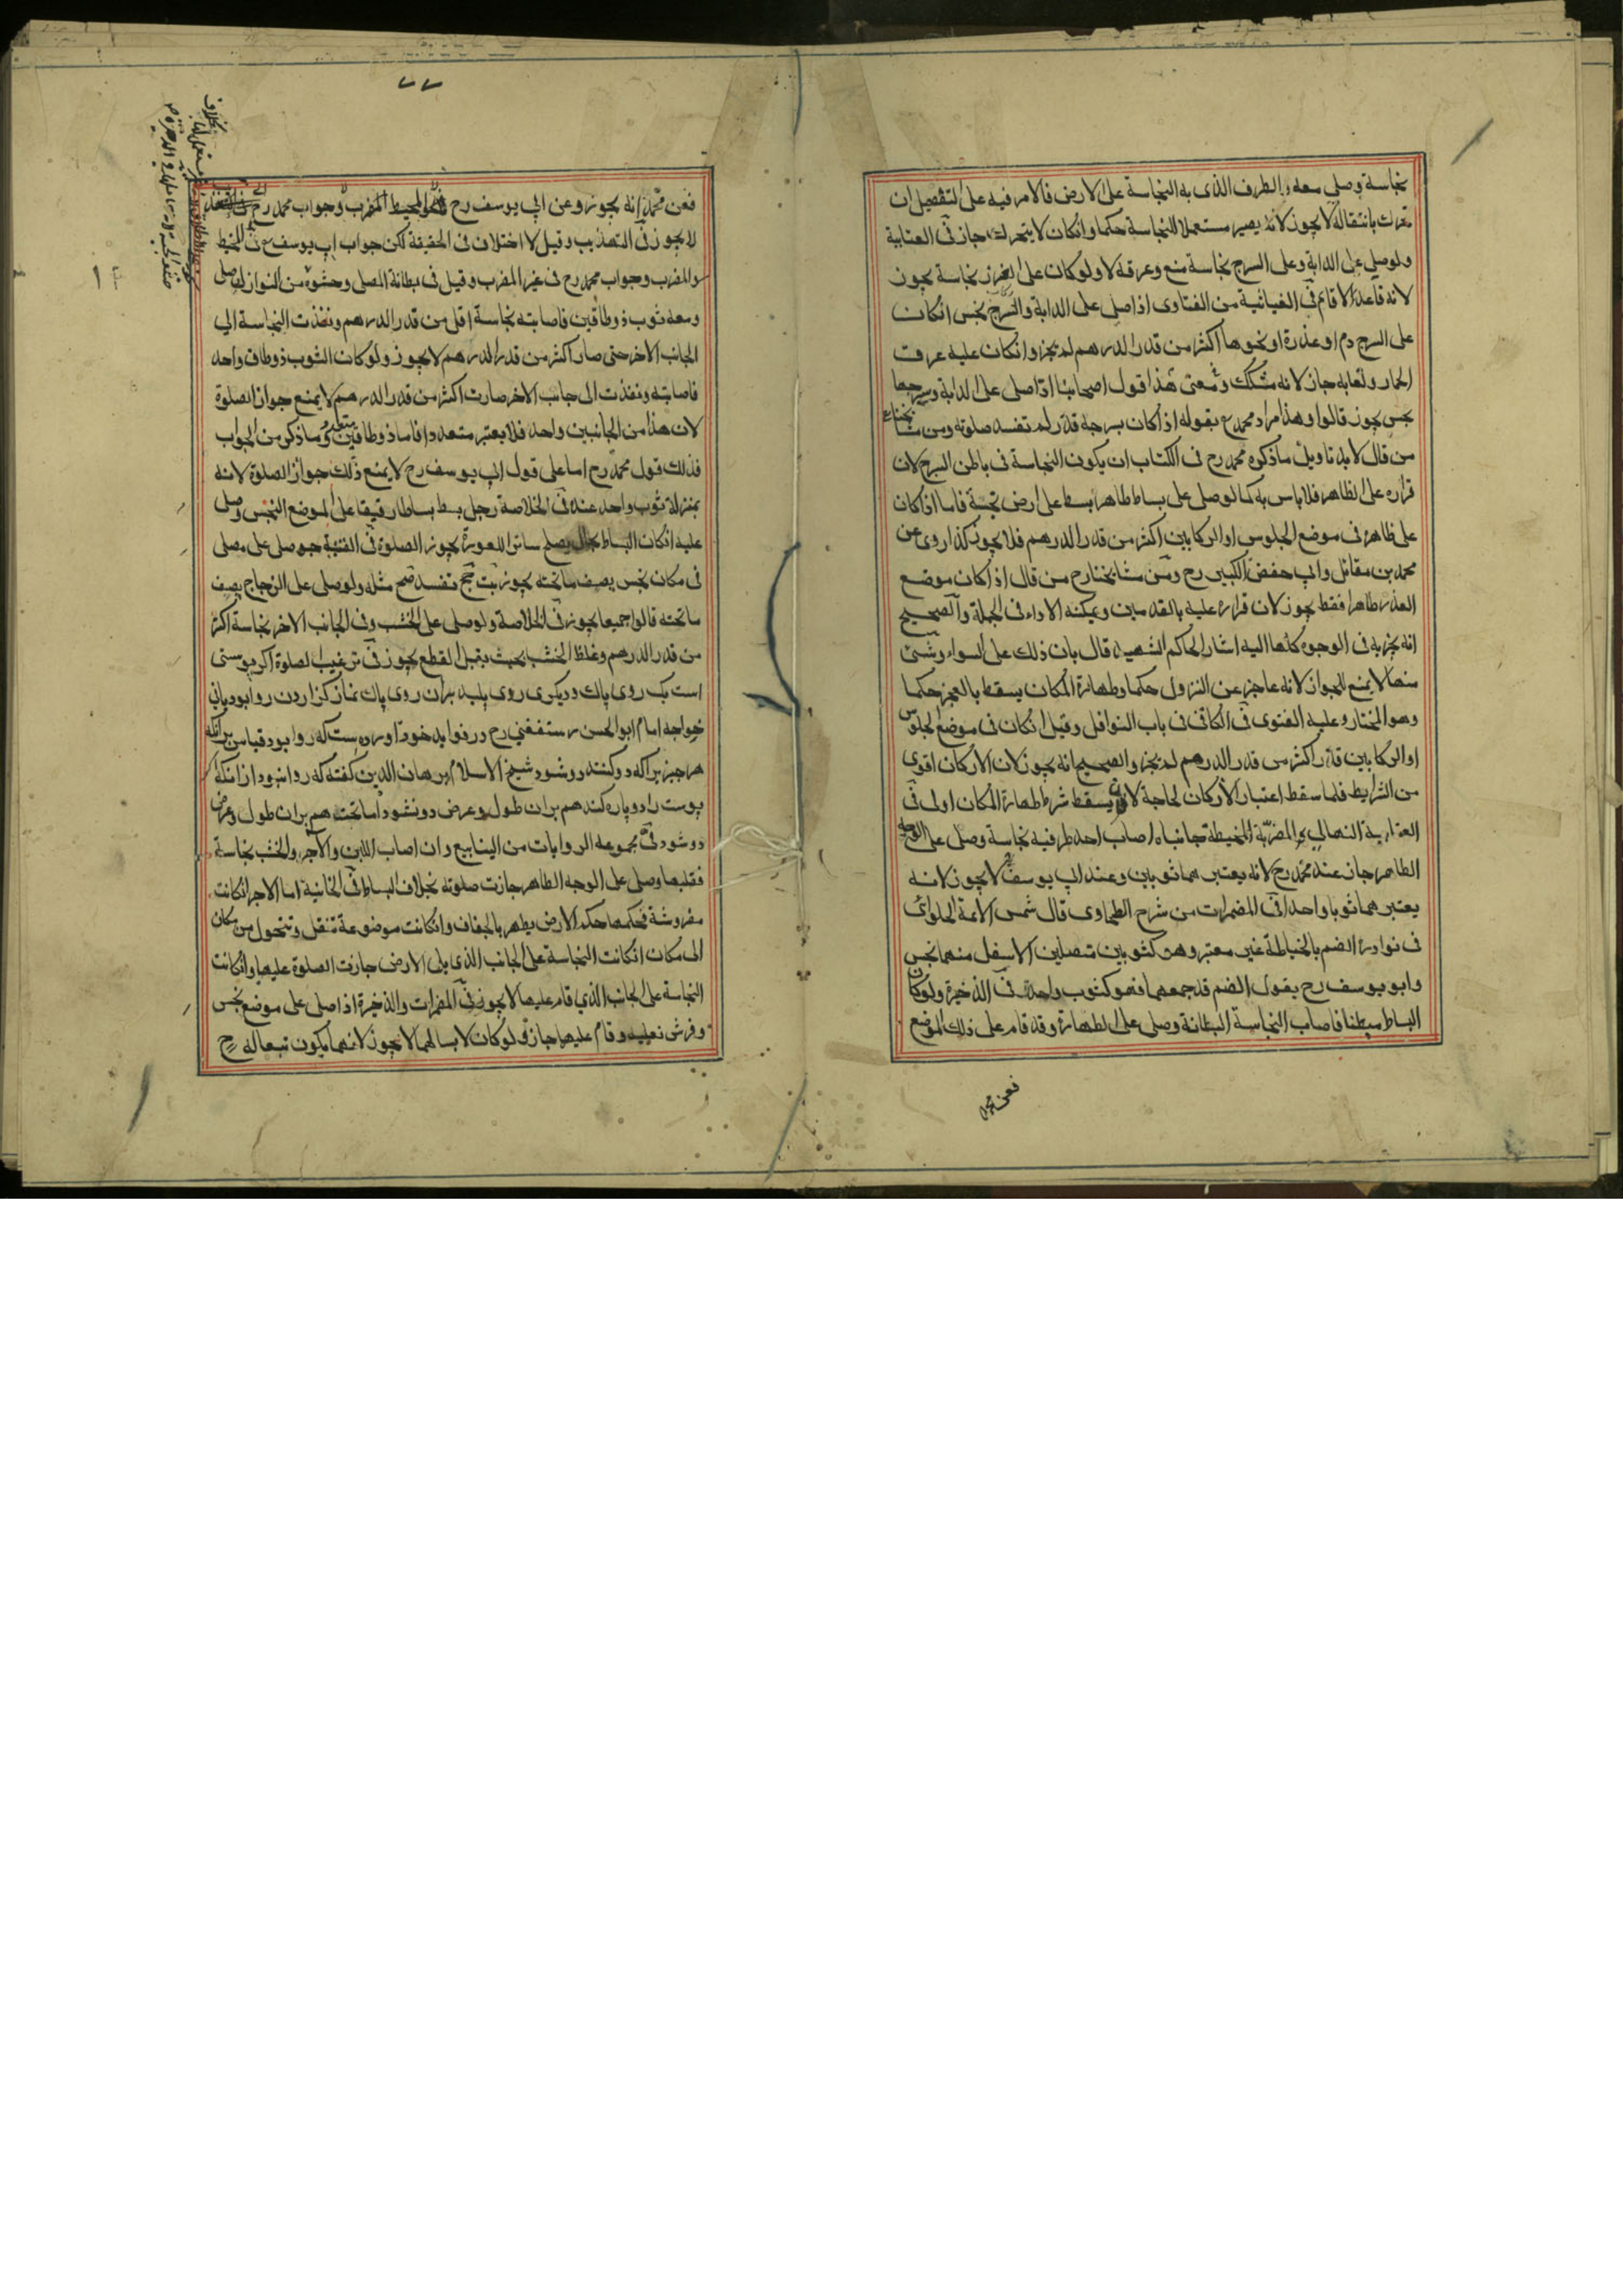 نجاسة وصلى معه والطرف الذى به النجاسة على الارض فالامر فيه على التفصيل ان
تحرك بانتقاله لا يجوز لانه يصير مستعملا للنجاسة حكما وانكان لا يتحرك جاز فى العتابية
ولو صلى على الدابة وعلى السرج نجاسة منع وعرقه لا ولو كان على نجاسة يجوز
لانه قاعد لا قائم فى الغياثية من الفتاوى اذا صلى على الدابة والسرج نجس انكان
على السرج دم او عذرة او نحوها اكثر من قدر الدرهم لم يجز وانكان عليه عرق
الحمار ولعابه جاز لانه مشكك ومعنى هذا قول اصحابنا اذا صلى على الدابة وسرجها
نجس يجوز قالوا وهذا مراد محمد بقوله اذا كان بسرجه قذر لم تفسد صلوته ومن مشايخنا
من قال لا بد تاويل ما ذكره محمد رح فى الكتاب ان يكون النجاسة فى باطن السرج لان
قراره على الظاهر فلا باس به كما لو صلى على بساط طاهر بسط على ارض نجسة فاما اذا كان
على ظاهره فى موضع الجلوس او الركابين اكثر من قدر الدرهم فلا يجوز كذا روى عن
محمد بن مقاتل وابى حفص الكبير رح ومن مشايخنا رح من قال اذا كان موضع
العذر طاهرا فقط يجوز لان قراره عليه بالقدمين ويمكنه الاداء فى الجملة والصحيح
انه يجزيه فى الوجوه كلها اليه اشار الحاكم الشهيد قال بان ذلك على السواء وشئ
منها لا يمنع الجواز لانه عاجز عن النزول حكما وطهارة المكان يسقط بالعجز حكما
وهو المختار وعليه الفتوى فى الكافى فى باب النوافل وقيل انكان فى موضع الجلوس
او الركابين قذر اكثر من قدر الدرهم لم يجز والصحيح انه يجوز لان الاركان اقوى
من الشرايط فلما سقط اعتبار الاركان لحاجة لان يسقط شرط طهارة المكان اولى فى
النهالى والمضربة المخيطة جانباه اصاب احد طرفيه نجاسة وصلى على الوجه
الطاهر جاز عند محمد رح لانه يعتبر هما ثوبين وعند ابى يوسف لا يجوز لانه
يعتبر هما ثوبا واحدا فى المضمرات من شرح الطحاوى قال شمس الائمة الحلوائى
فى نوادره الضم بالخياطة غير معتبر وهو كثوبين متصلين الاسفل منهما نجس
وابو يوسف رح يقول الضم قد جمعهما فهو كثوب واحد فى الذخيرة ولو كان
البساط مبطنا فاصاب النجاسة البطانة وصلى على الطهارة وقد قام على ذلك الموضع
فعن محمد
فعن محمد انه يجوز وعن ابى يوسف رح المحيط المضرب وجواب محمد رح
لا يجوز فى التهذيب وقيل لا اختلاف فى الحقيقة لكن جواب ابى يوسف فى المخيط
والمضرب وجواب محمد رح فى غير المضرب وقيل فى بطانة المصلى وحشوه من النوازل صلى
ومعه ثوب ذو طاقين فاصابته نجاسة اقل من قدر الدرهم ونفذت النجاسة الى
الجانب الاخر حتى صار اكثر من قدر الدرهم لا يجوز ولو كان الثوب ذو طاق واحد
فاصابته ونفذت الى جانب الاخر صارت اكثر من قدر الدرهم لا يمنع جواز الصلوة
لان هذا من الجانبين واحد فلا يعتبر متعددا فاما ذو طاقين متعدد وما ذكر من الجواب
فذلك قول محمد رح اما على قول ابى يوسف رح لا يمنع ذلك جواز الصلوة لانه
بمنزلة ثوب واحد عنده فى الخلاصة رجل بسط بساطا رقيقا على الموضع النجس وصلى
عليه انكان البساط بحال يصلح ساترا للعورة يجوز الصلوة فى القنية صلى على مصلى
فى مكان نجس يصف ما تحته يجوز بت تفسد صح مثله ولو صلى على الزجاج يصف
ما تحته قالوا جميعا يجوز فى الخلاصة ولو صلى على الخشب وفى الجانب الاخر نجاسة اكثر
من قدر الدرهم وغلظ الخشب بحيث يقبل القطع يجوز فى ترغيب الصلوة اكر پوستى
است يك روى پاك وديكرى روى پليد بران روى پاك نماز كزاردن روا بود يانى
خواجه امام ابو الحسن رستغفنى رح در فوايد خود اورده ست كه روا بود قياس برانكه
هر چيز براكه دو كنند دو شود شيخ الاسلام برهان الدين كفته كه روا نبود ازانكه
پوست را دو پاره كند هم بران طول وعرض دو نشود اما تخته هم بران طول وعرض
دو شود فى مجموعه الروايات من الينابيع وان اصاب اللبن والآجر والخشب نجاسة
فقلبها وصلى على الوجه الطاهر جازت صلوته بخلاف البساط فى الخانية اما الاجر انكانت
مفروشة فحكمها حكم الارض يطهر بالجفاف وانكانت موضوعة تنقل وتتحول من مكان
الى مكان انكانت النجاسة على الجانب الذى يلى الارض جازت الصلوة عليها وانكانت
النجاسة على الجانب الذى قام عليها لا يجوز فى المضمرات والذخيرة اذا صلى على موضع نجس
وفرش نعليه وقام عليها جاز ولو كان لابسا لهما لا يجوز لانهما يكون تبعا له